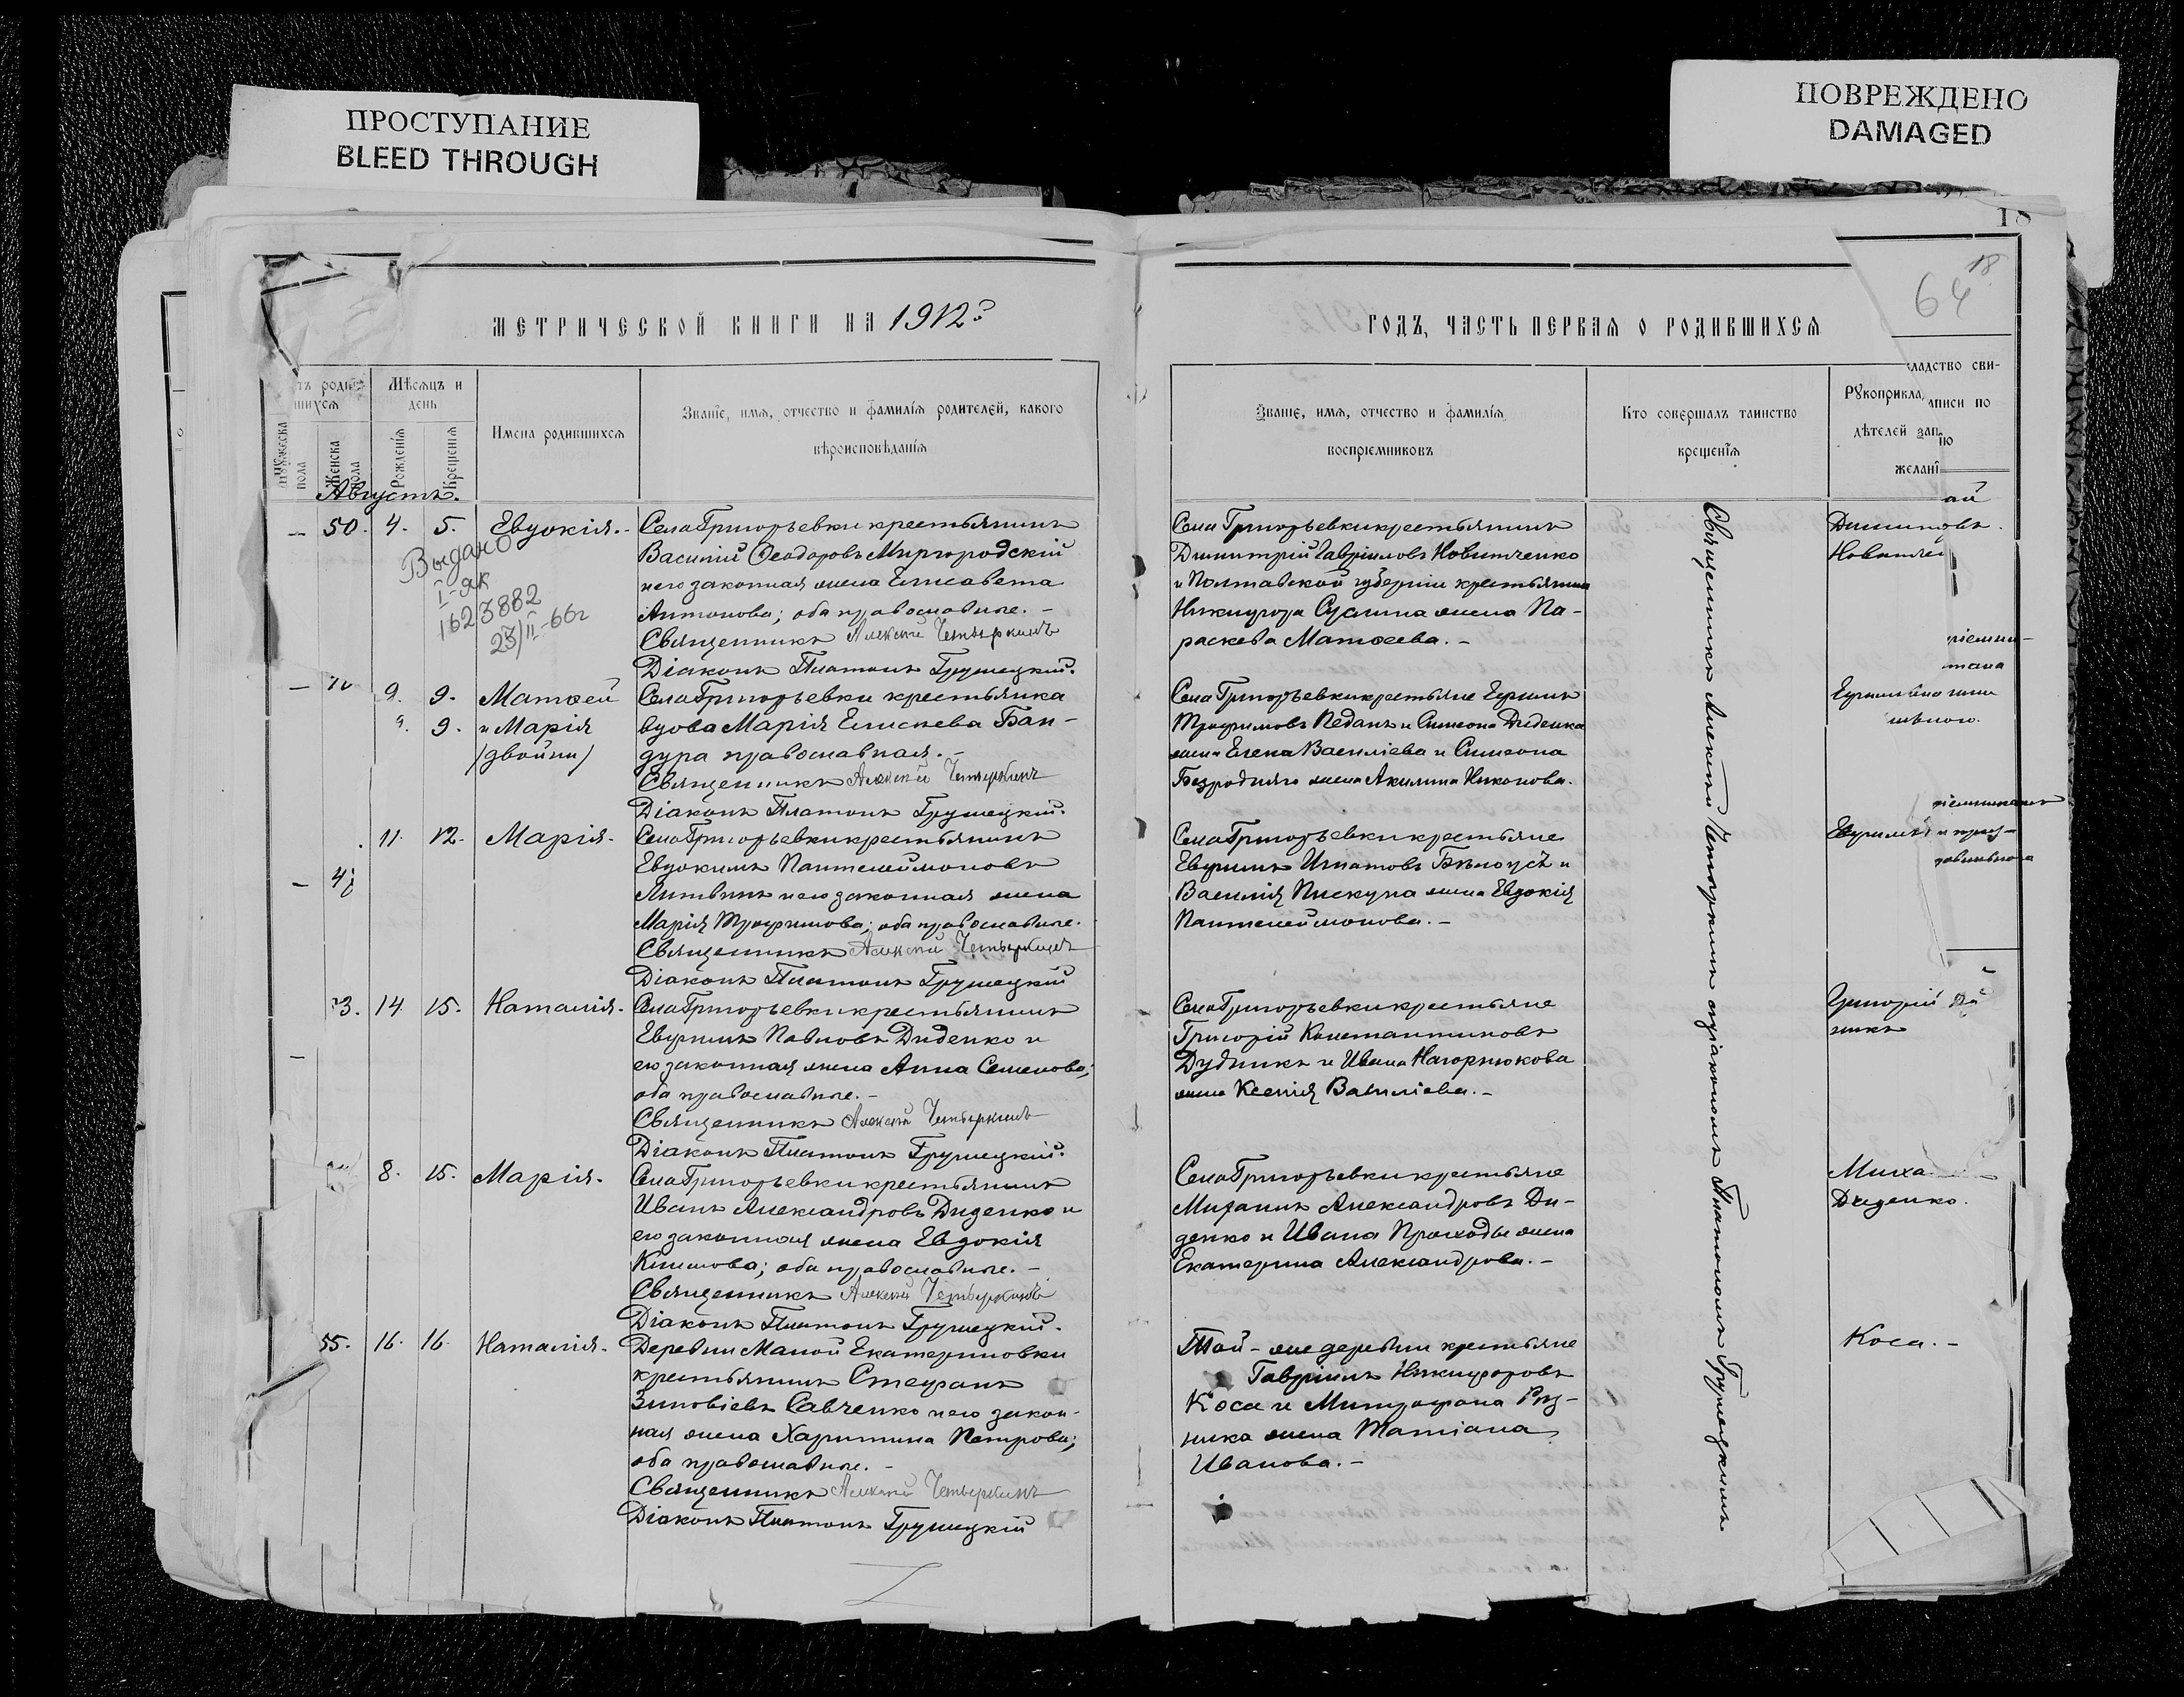 ПРОСТУПАНИЕ
BLEED THROUGH
ПОВРЕЖДЕНО
DAMAGED
18
18
64
МЕТРИЧЕСКОЙ КНИГИ НА 1912 г
ГОДЪ, ЧАСТЬ ПЕРВАЯ О РОДИВШИХСЯ
Мѣсяцъ и день
Мужеска пола
Женска пола
Рожденія
Крещенія
Имена родившихся
Званіе, имя, отчество и фамилія родителей, какого
вѣроисповѣданія
Званіе, имя, отчество и фамилія
воспріемниковъ
Кто совершалъ таинство
крещенія
Рукоприкла
ладство сви-
дѣтелей зап
аписи по
желанi
Августъ.
— 50. 4. 5. Евдокія.
Села Григорьевки крестьянинъ
Василій Ѳеодоровъ Миргородскій
и его законная жена Елисавета
Антонова; оба православные. —
Священникъ Алексій Четыркинъ
Діаконъ Платонъ Грушецкій.
Выдано
I-ЯК
1623882
23/II-66г
Села Григорьевки крестьянинъ
Димитрій Гавріиловъ Новитченко
и Полтавской губерніи крестьянина
Никифора Сулима жена Па-
раскева Матѳеева. —
Димитрій
Новитче
9. 9. Матѳей
9. и Марія
(двойни)
Села Григорьевки крестьянка
вдова Марія Елисеева Бан-
дура православная. —
Священникъ Алексій Четыркинъ
Діаконъ Платонъ Грушецкій.
Села Григорьевки крестьяне Ефимъ
Трофимовъ Педанъ и Симеона Диденка
жена Елена Василіева и Симеона
Безроднаго жена Акилина Никонова.
11. 12. Марія.
Села Григорьевки крестьянинъ
Евдокимъ Пантелеймоновъ
Литвинъ и его законная жена
Марія Трофимова; оба православные.
Священникъ Алексій Четыркинъ
Діаконъ Платонъ Грушецкій
Села Григорьевки крестьяне
Евфимъ Игнатовъ Бѣлоусъ и
Василія Пискуна жена Евдокія
Пантелеймонова. —
3. 14. 15. Наталія.
Села Григорьевки крестьянинъ
Евфимъ Павловъ Диденко и
его законная жена Анна Семенова;
оба православные. —
Священникъ Алексій Четыркинъ
Діаконъ Платонъ Грушецкій.
Села Григорьевки крестьяне
Григорій Константиновъ
Дудникъ и Ивана Нагорнюкова
жена Ксенія Василіева. —
Григорій Ду
никъ
8. 15. Марія.
Села Григорьевки крестьянинъ
Иванъ Александровъ Диденко и
его законная жена Евдокія
Климова; оба православные. —
Священникъ Алексій Четыркинъ
Діаконъ Платонъ Грушецкій.
Села Григорьевки крестьяне
Михаилъ Александровъ Ди-
денко и Ивана Проходы жена
Екатерина Александрова. —
Миха
Диденко.
55. 16. 16. Наталія.
Деревни Малой Екатериновки
крестьянинъ Стефанъ
Зиновіевъ Савченко и его закон-
ная жена Харитина Петрова;
оба православные. —
Священникъ Алексій Четыркинъ
Діаконъ Платонъ Грушецкій
Той-же деревни крестьяне
Гавріилъ Никифоровъ
Коса и Митрофана Рѣз-
ника жена Татіана
Иванова. —
Коса. —
Священникъ Алексій Четыркинъ съ діакономъ Платономъ Грушецкимъ